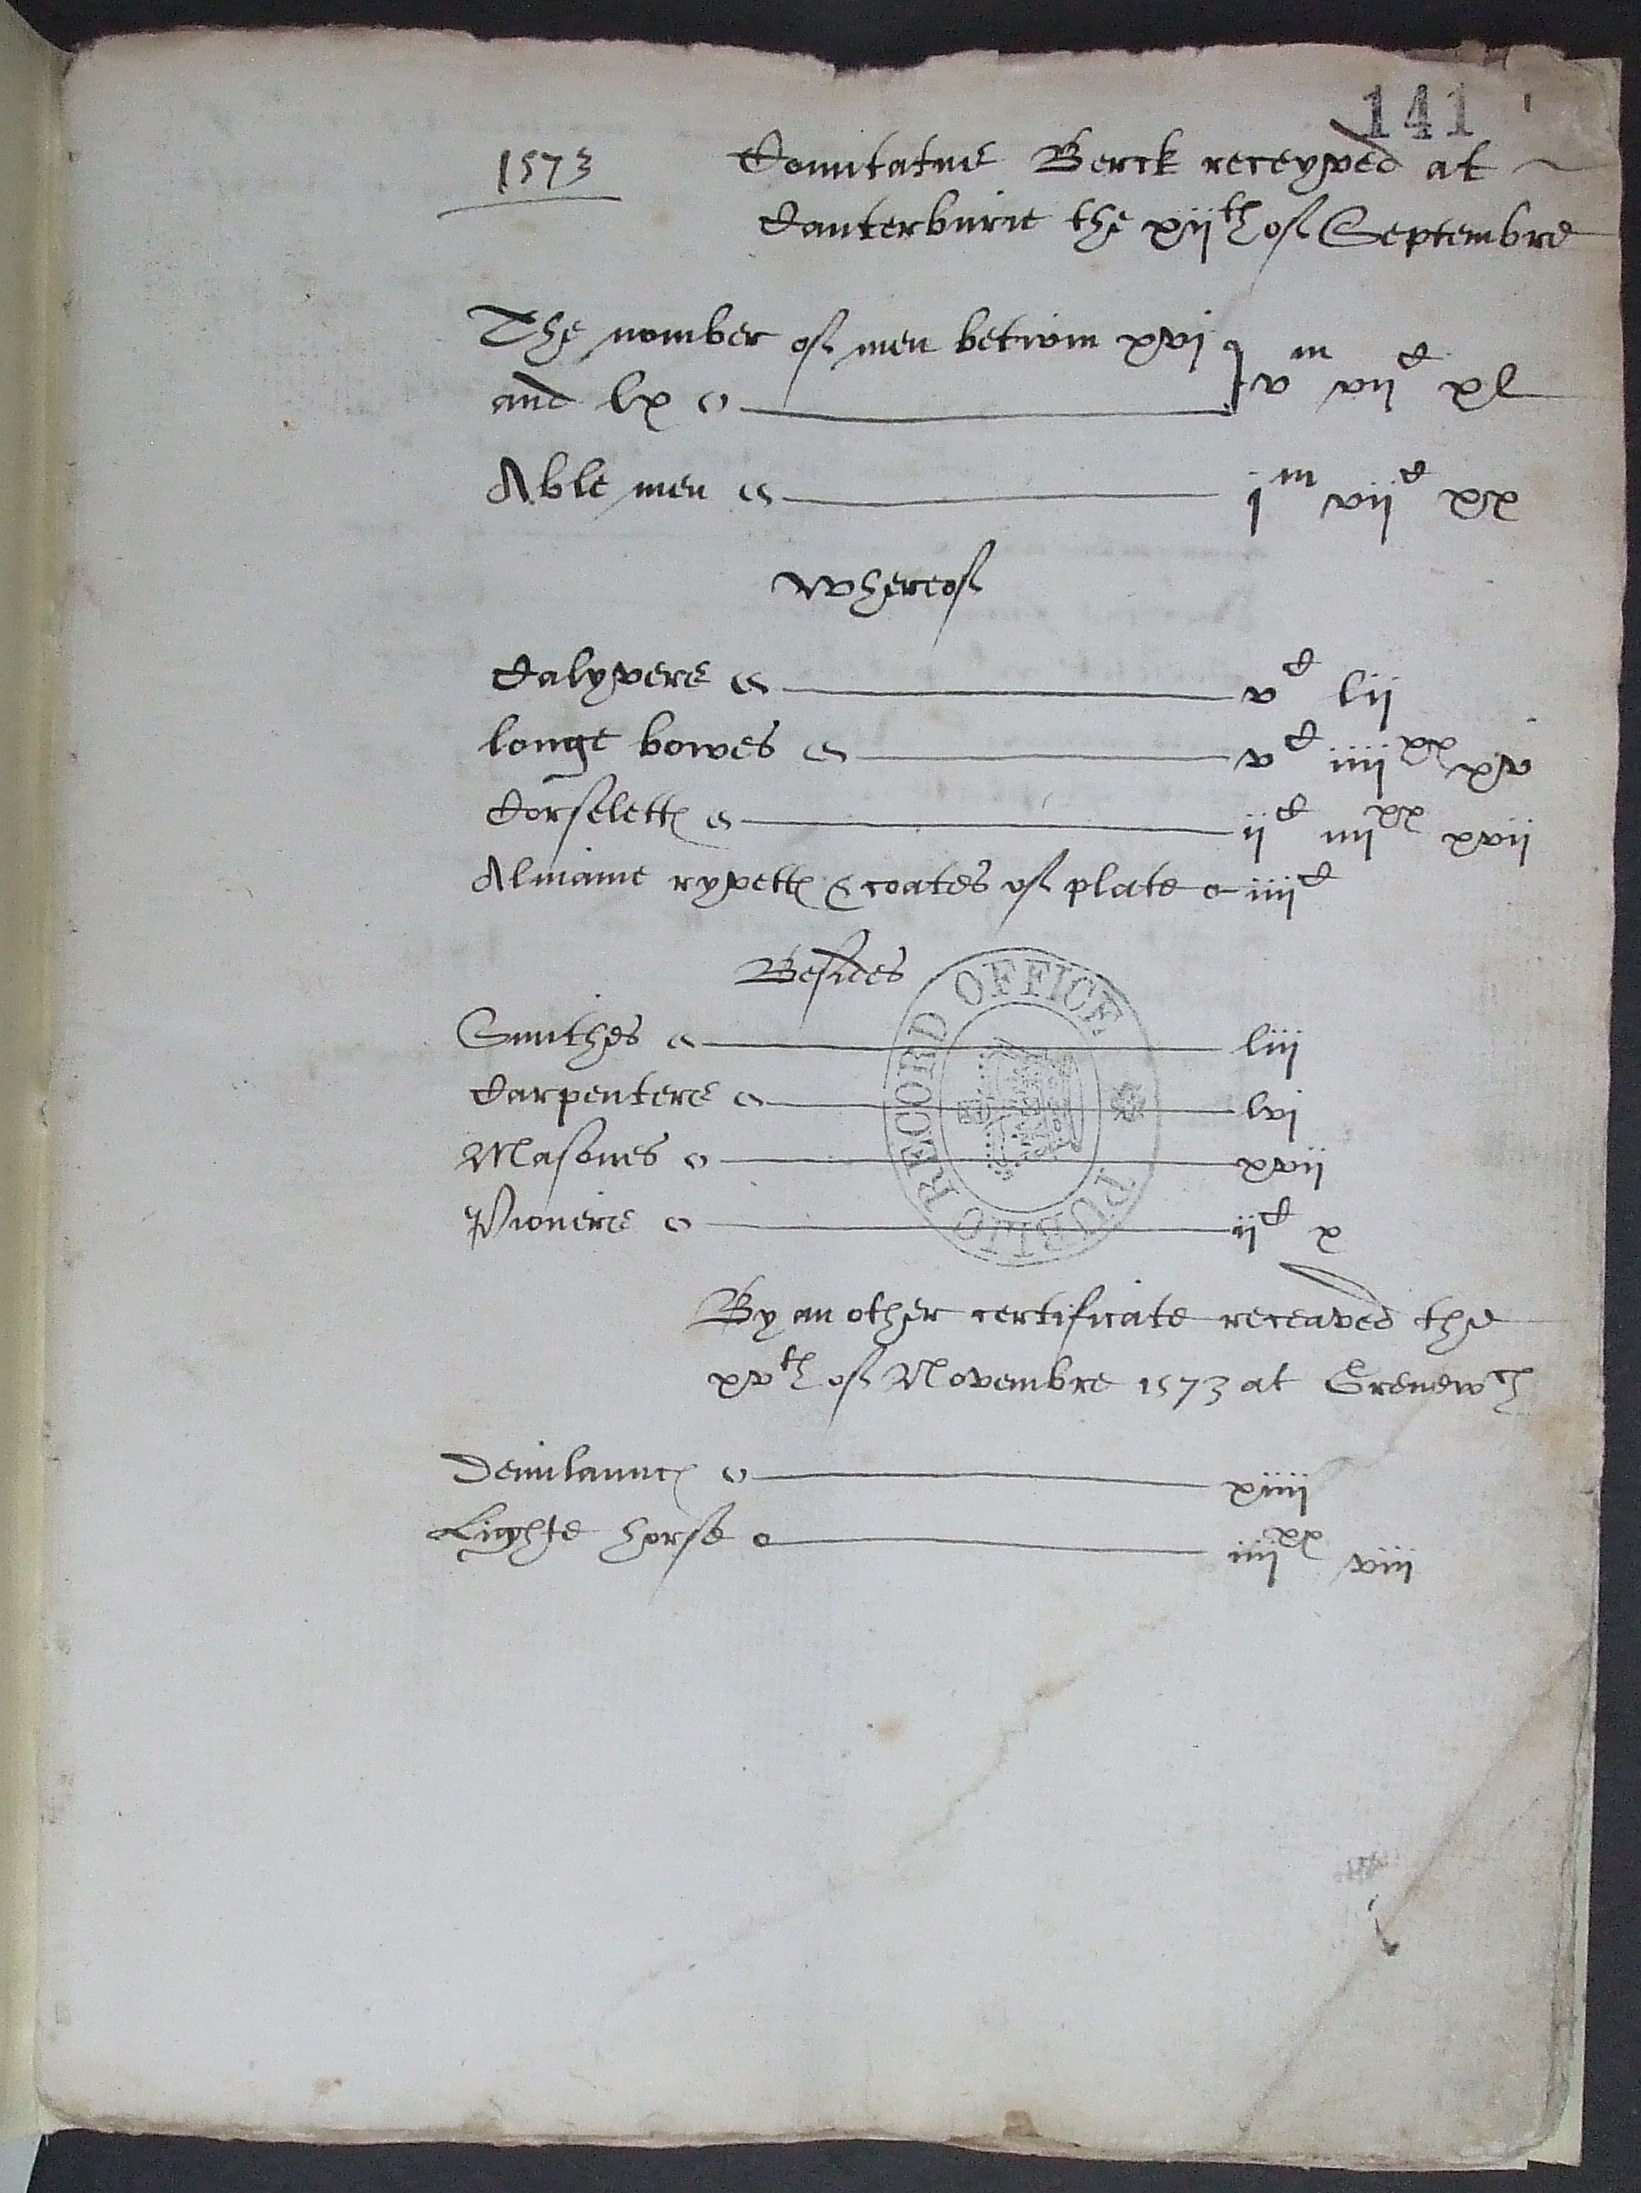 141
1573
Comitatus Berck receyved at
Canterburie the xiith of Septembre
The nomber of men betwin xvi
and lx vm viic xl
Able men im viic xx
Whereof
Calyvers vc lii
longe bowes vc iiiixx xv
Corseletts iic iiiixx xvii
Almaine ryvetts & coates of plate iiiic
Besides
Smithes liii
Carpenters lvi
Masones xvii
Pioners iic x
PUBLIC RECORD OFFICE
By an other certificate receaved the
xvth of Novembre 1573 at Grenewch
Demilaunces xiiii
Lighte horse iiiixx viii